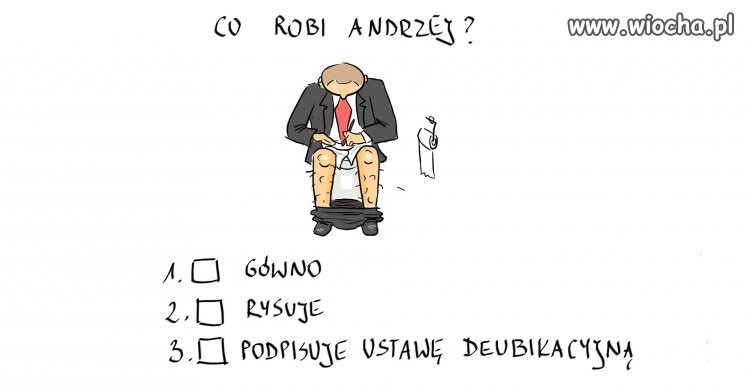 CO ROBI ANDRZEJ?
www.wiocha.pl
1. GÓWNO
2. RYSUJE
3. PODPISUJE USTAWĘ DEUBIKACYJNĄ